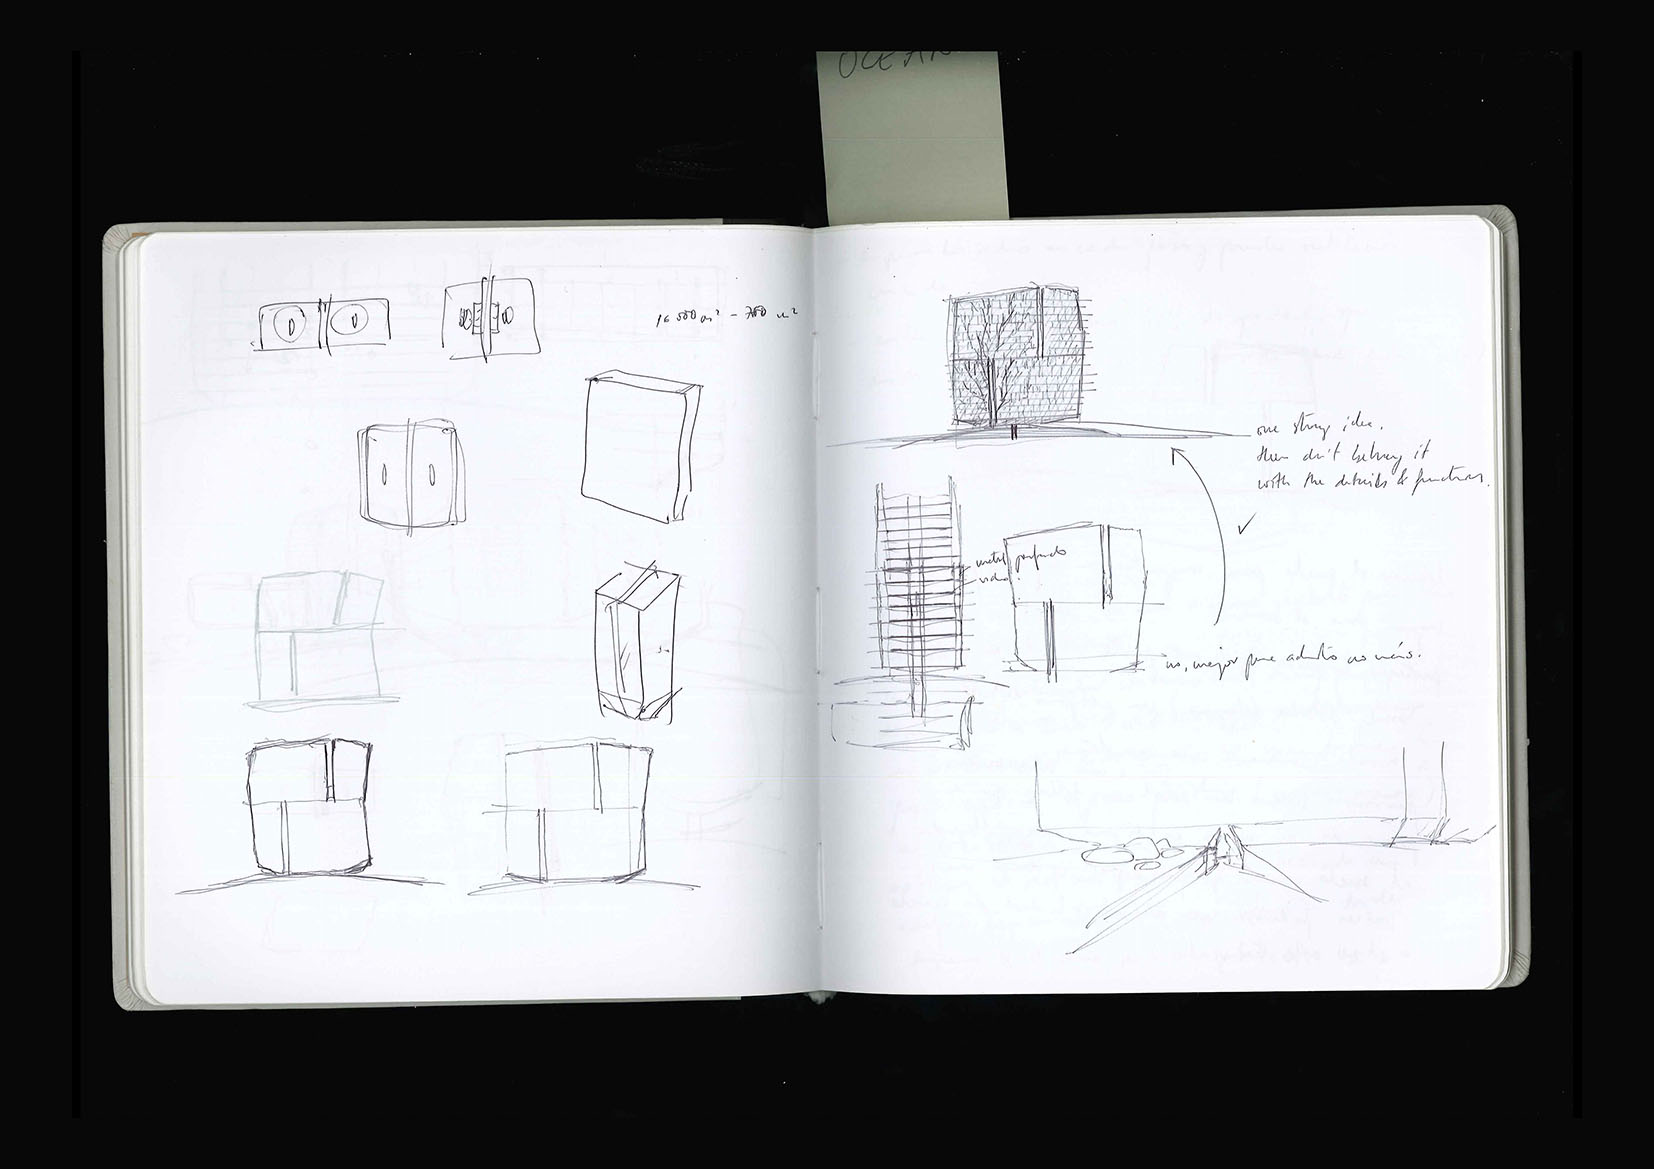 OCEAN
16 500 m² - 700 m²
one strong idea.
then don't betray it
with the details & functions.
metal perforado
vidrio
no, mejor pure adentro no más.